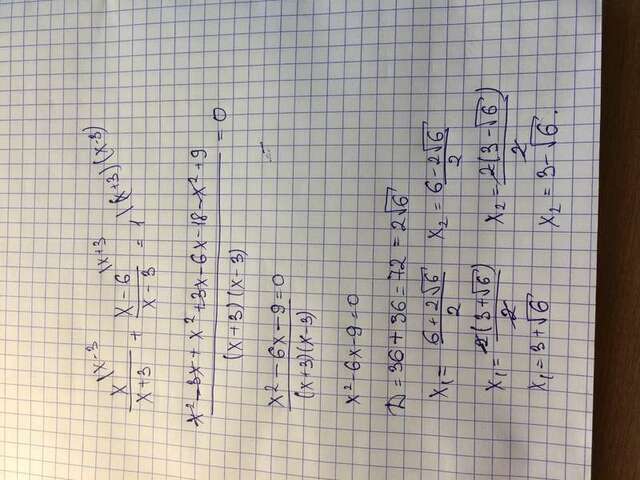 x\x-3 / x+3 + x-6\x+3 / x-3 = 1\(x+3)(x-3)
x²-3x+x²+3x-6x-18-x²+9 / (x+3)(x-3) = 0
x²-6x-9 / (x+3)(x-3) = 0
x²-6x-9=0
D=36+36=72=2√6
x₁= 6+2√6 / 2 x₂= 6-2√6 / 2
x₁= 2(3+√6) / 2 x₂= 2(3-√6) / 2
x₁=3+√6 x₂=3-√6.